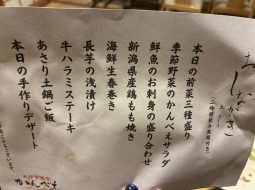 おしながき
本日の前菜三種盛り
季節野菜のかんべえサラダ
鮮魚のお刺身の盛り合わせ
新潟県産鶏もも焼き
海鮮生春巻き
長芋の浅漬け
牛ハラミステーキ
あさり土鍋ご飯
本日の手作りデザート